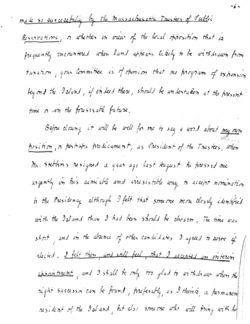 -6-
made so successfully by the Massachusetts Trustees of Public
Reservations, or whether in view of the local opposition that is
frequently encountered when land appears likely to be withdrawn from
taxation, your Committee is of opinion that no program of expansion
beyond the Island, if indeed there, should be undertaken at the present
time or in the foreseeable future.
Before closing it will be well for me to say a word about my own
position, or perhaps predicament, as President of the Trustees. When
Mr. Stebbins resigned a year ago last August he pressed me
urgently in his amiable and irresistible way to accept nomination
to the Presidency although I felt that someone more closely identified
with the Island than I had been should be chosen. The time was
short, and in the absence of other candidates I agreed to serve if
elected. I felt then, and still feel, that I accepted an interim
appointment, and I should be only too glad to withdraw when the
right successor can be found, preferably, as I think, a permanent
resident of the Island, but also someone who will bring with he